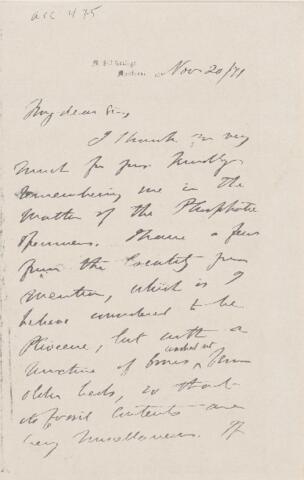 acc 475
Nov 20/71
My dear Sir,
I thank you very
much for your kindly
remembering me in the
matter of the Phosphate
specimens. I have a few
from the locality you
mention, which is I
believe considered to be
Pliocene, but with a
washed out
mixture of bones from
older beds, so that
its fossil contents are
very miscellaneous. If